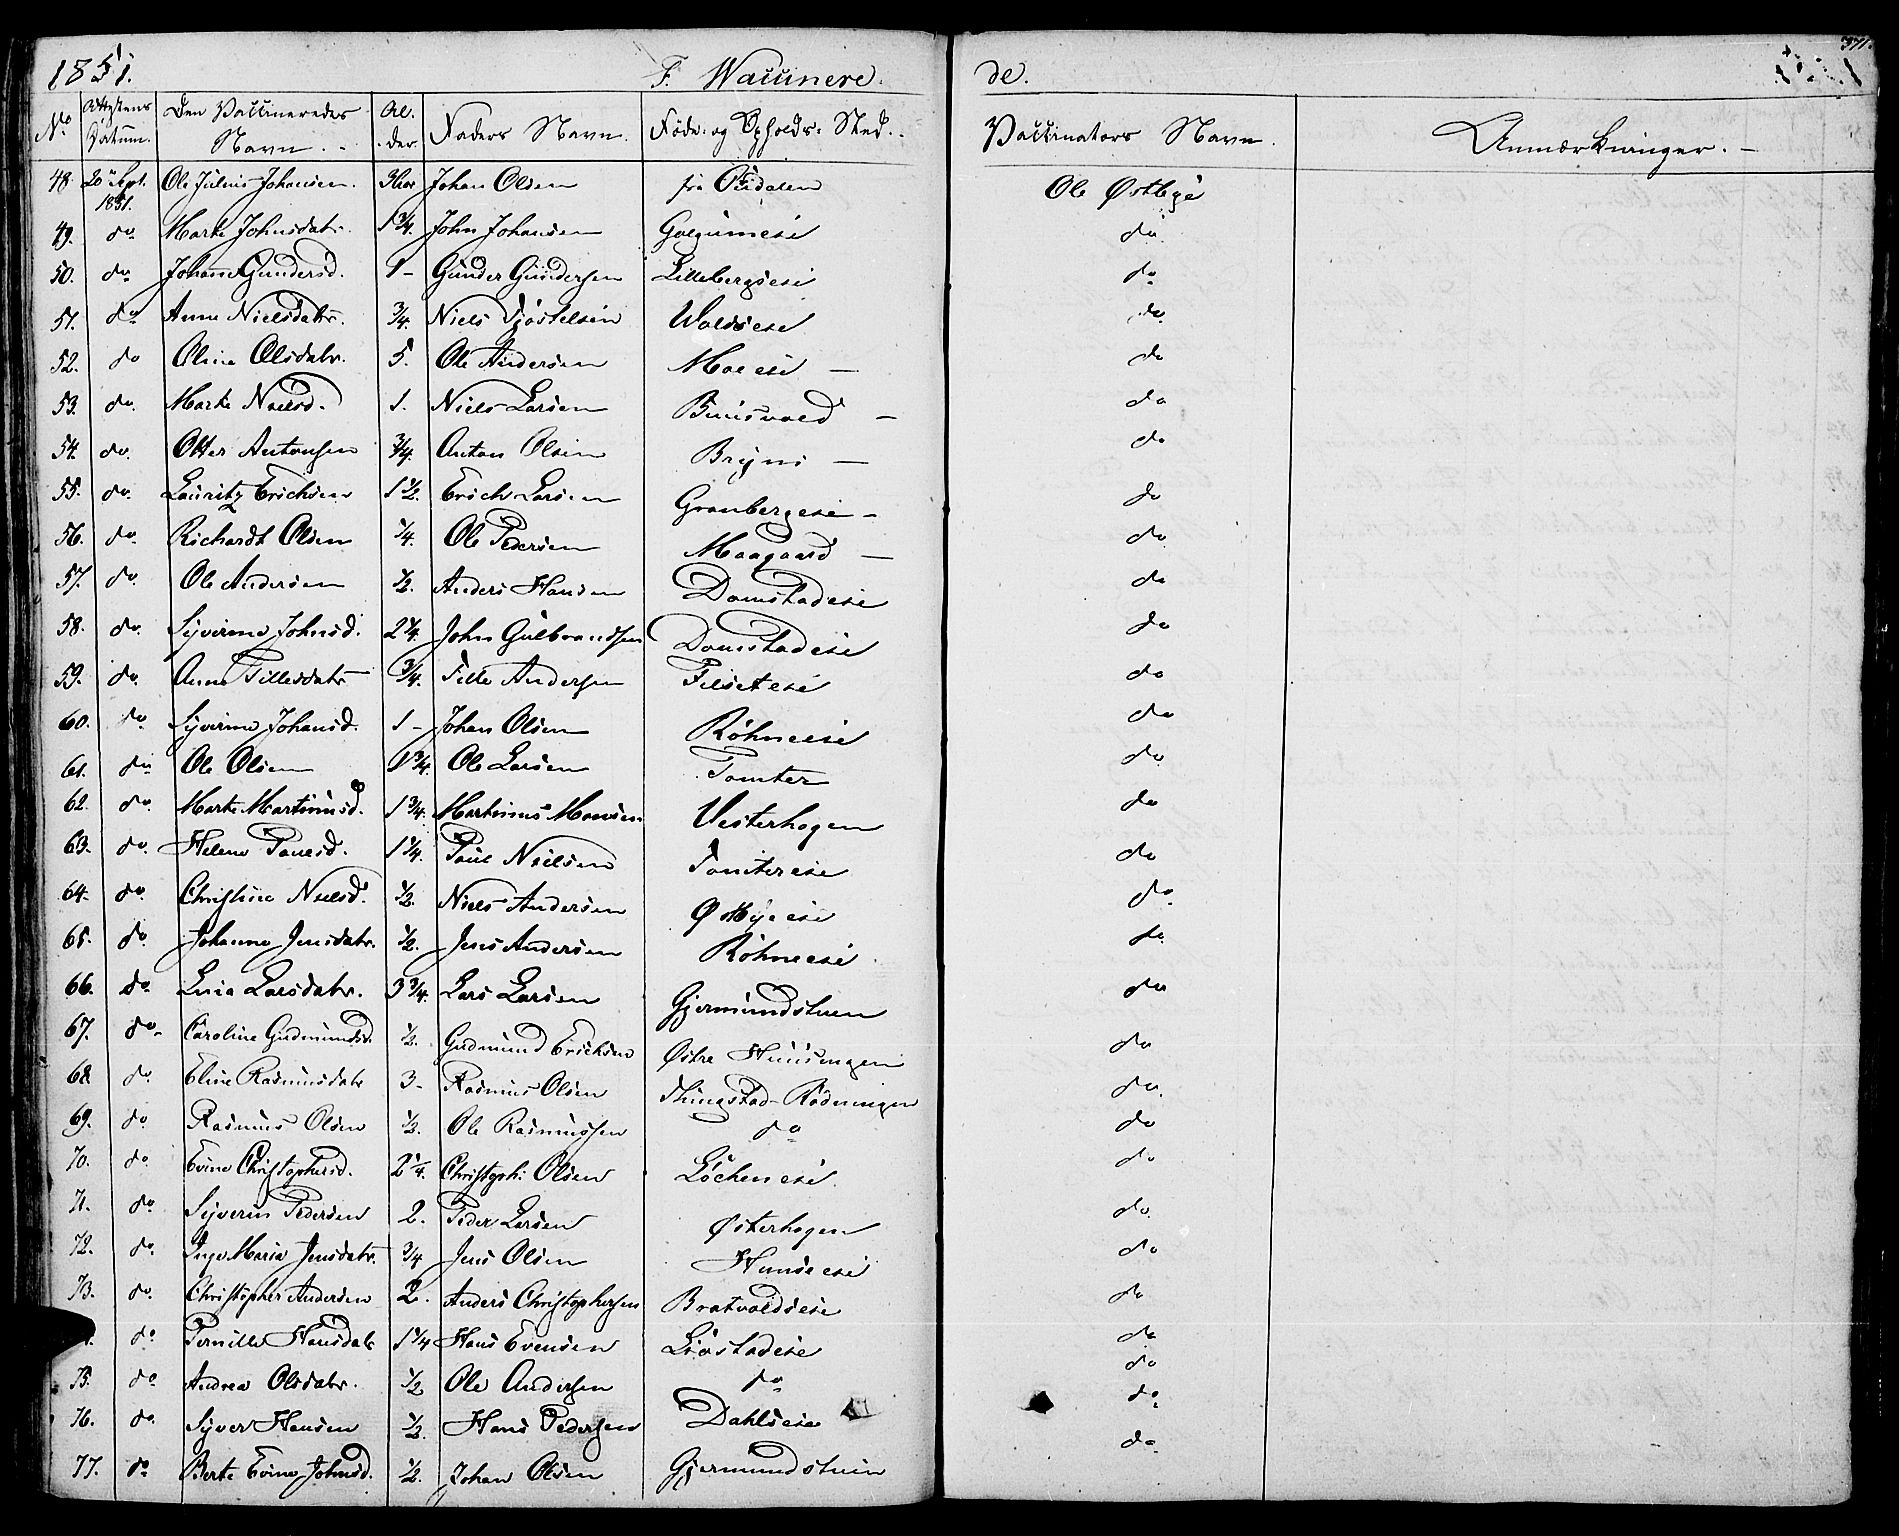 1851. F. Waccinere de. 371.
No Attestens Datum. Den Vaccineredes Navn. Al. der. Faders Navn. Føde- og Opholds- Sted. Vaccinators Navn. Anmærkninger.
48. 20 Sept. 1851. Ole Julius Johansen. Johan Olsen fra Ole Østbye
49. do Marte Johnsdatr. 1 3/4. John Johansen do
50. do Johane Gundersd. 1 - Gunder Gundersen Lillebergseie do
51. do Anne Nielsdatr. 3/4. Niels Woldseie do
52. do Oline Olsdatr. 5. Ole Andersen Moeeie - do
53. do. Marte Nielsd. 1. Niels Larsen Buusvold - do
54. do. Otter Antonsen 3/4. Anton Olsen Bryni - do
55. do. Lauritz Erichsen 1 1/2. Erich Larsen Granbergeie - do
56. do. Richardt Olsen 1/4. Ole Pedersen Maagaard - do
57. do. Ole Andersen 1/2. Anders Hansen Domstadeie do
58. do. Syverine Johnsd. 2 1/4. John Gulbrandsen Domstadeie do
59. do. Anne Tillesdatr 3/4. Tille Andersen Filseteie do
60. do Syverine Johansd. 1 - Johan Olsen Røhneeie do
61. do Ole Olsen 1 3/4. Ole Larsen Tomter do
62. do. Marte Martinusd. 1 3/4. Martinus Monsen Vesterhagen do
63. do. Helene Paulsd. 1 1/4. Paul Nielsen Tomtereie do
64. do. Christine Nielsd. 1/2. Niels Andersen Østbyeeie do.
65. do. Johanne Jensdatr. 1/2. Jens Andersen Røhneeie do
66. do Lars­datr. 3 3/4. Lars Larsen Gjermundstuen do
67. do. Caroline Gudmundsd. 1/2. Gudmund Erichsen Østre Huusengen do
68. do. Eline Rasmusdatr 3 - Rasmus Olsen Thingstad- Rødningen do.
69. do. Rasmus Olsen 1/2. Ole Rasmussen do do
70. do. Evine Christophersd. 2 1/4. Christoph: Olsen Løcheneie. do
71. do Syverin Pedersen 2. Peder Larsen Østerhagen do
72. do. Inge Marie Jensdatr. 3/4 Jens Olsen Hunseeie do
73. do. Christopher Andersen 2. Anders Christophersen Bratvoldseie do
do Pernille Hansdatr 1 1/4 Hans Evensen Liøstadeie do
75. do Andrea Olsdatr. 1/2 Ole Andersen do do
76. do. Syver Hansen 1/2 Hans Pedersen Dahlseie do
77. do Berte Evine Johnsd. 1/2. Johan Olsen Gjermundstuen do